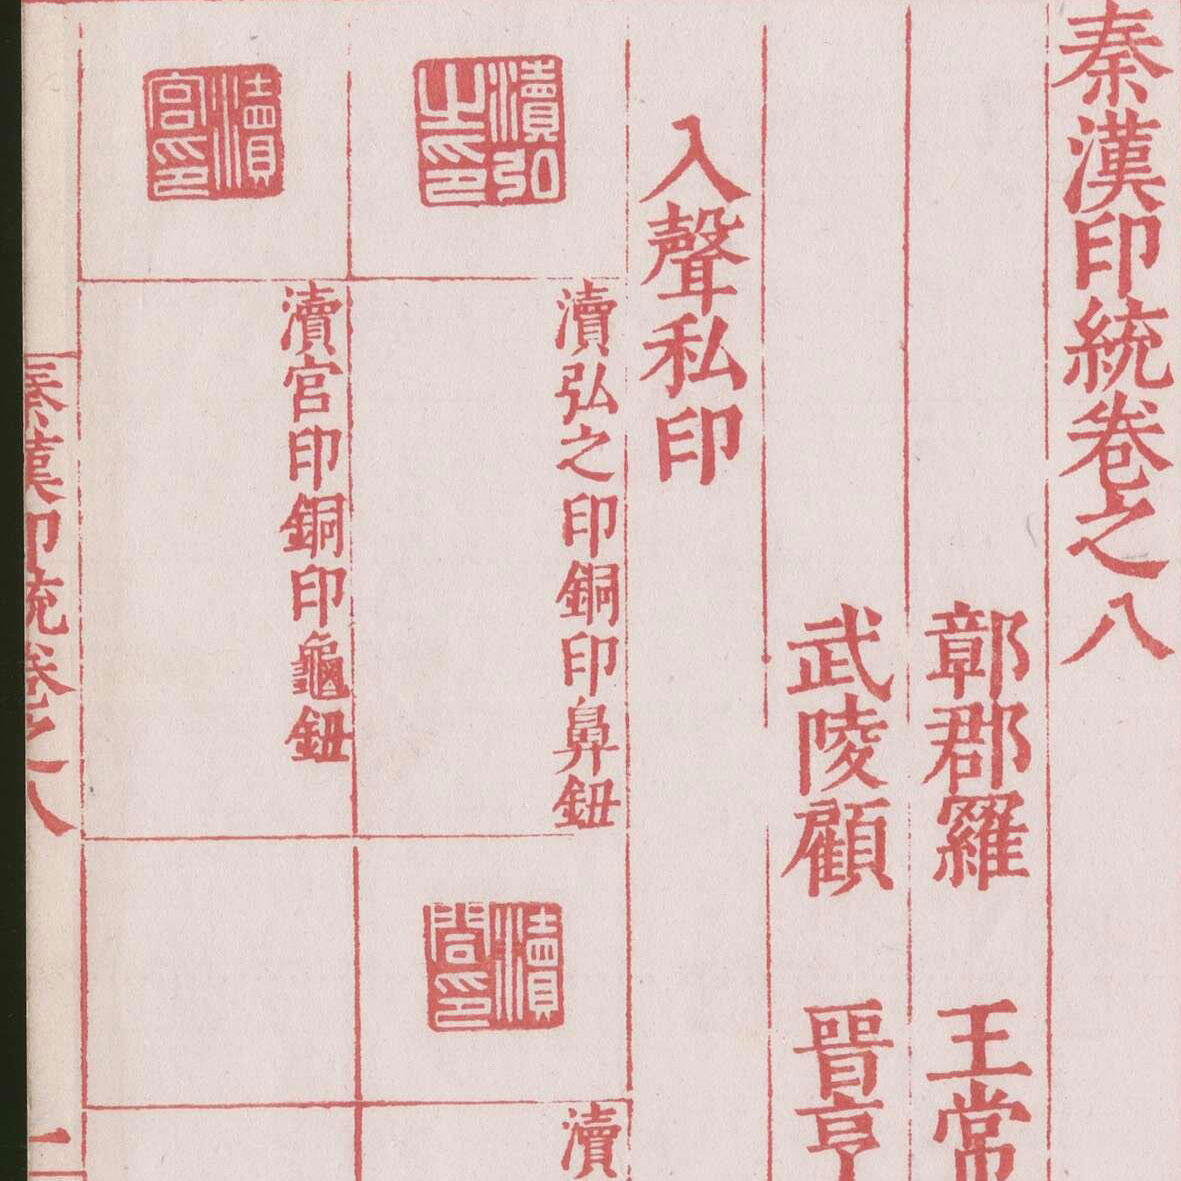 秦漢印統卷之八
鄣郡羅 王常
武陵顧 晉亨
入聲私印
瀆弘之印
瀆弘之印銅印鼻鈕
瀆
瀆宮印
瀆官印銅印龜鈕
秦漢印統卷之八